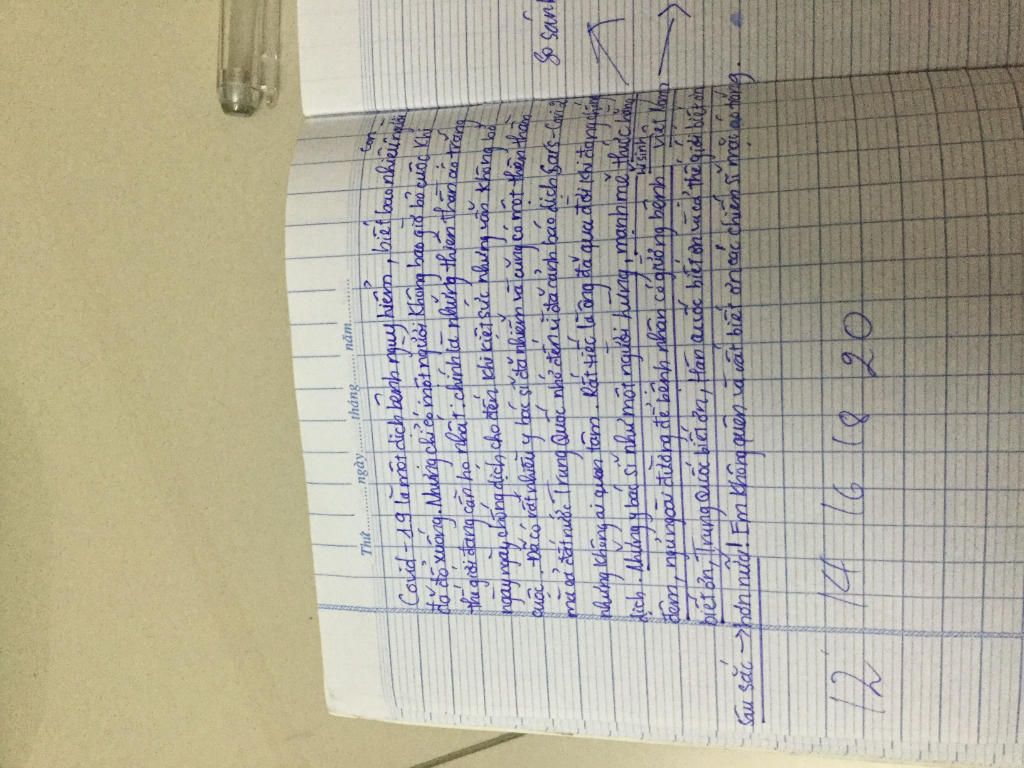 Thứ ........ ngày ........ tháng ........ năm ........
Covid-19 là một dịch bệnh nguy hiểm, biết bao nhiêu người con
đã đổ xuống. Nhưng chỉ có một người không bao giờ bỏ cuộc khi
thế giới đang cần họ nhất. chính là những thiên thần áo trắng
ngày ngày chống dịch cho đến khi kiệt sức nhưng vẫn không bỏ
cuộc. Đã có rất nhiều y bác sĩ đã nhiễm và cũng có một thiên thần
mà cả đất nước Trung Quốc nhớ đến vì đã cảnh báo dịch Sars-Cov2
nhưng không ai quan tâm. Rất tiếc là ông đã qua đời khi đang
dịch. Những y bác sĩ như một người hùng, mạnh mẽ thức hằng
đêm, ngủ ngoài đường để bệnh nhân có giường bệnh. Việt Nam
hi sinh
biết ơn, Trung Quốc biết ơn, Hàn Quốc biết ơn và cả thế giới biết ơn
sâu sắc → hơn nữa! Em không quên và rất biết ơn các chiến sĩ mãi áo trắng.
12 14 16 18 20
so sánh